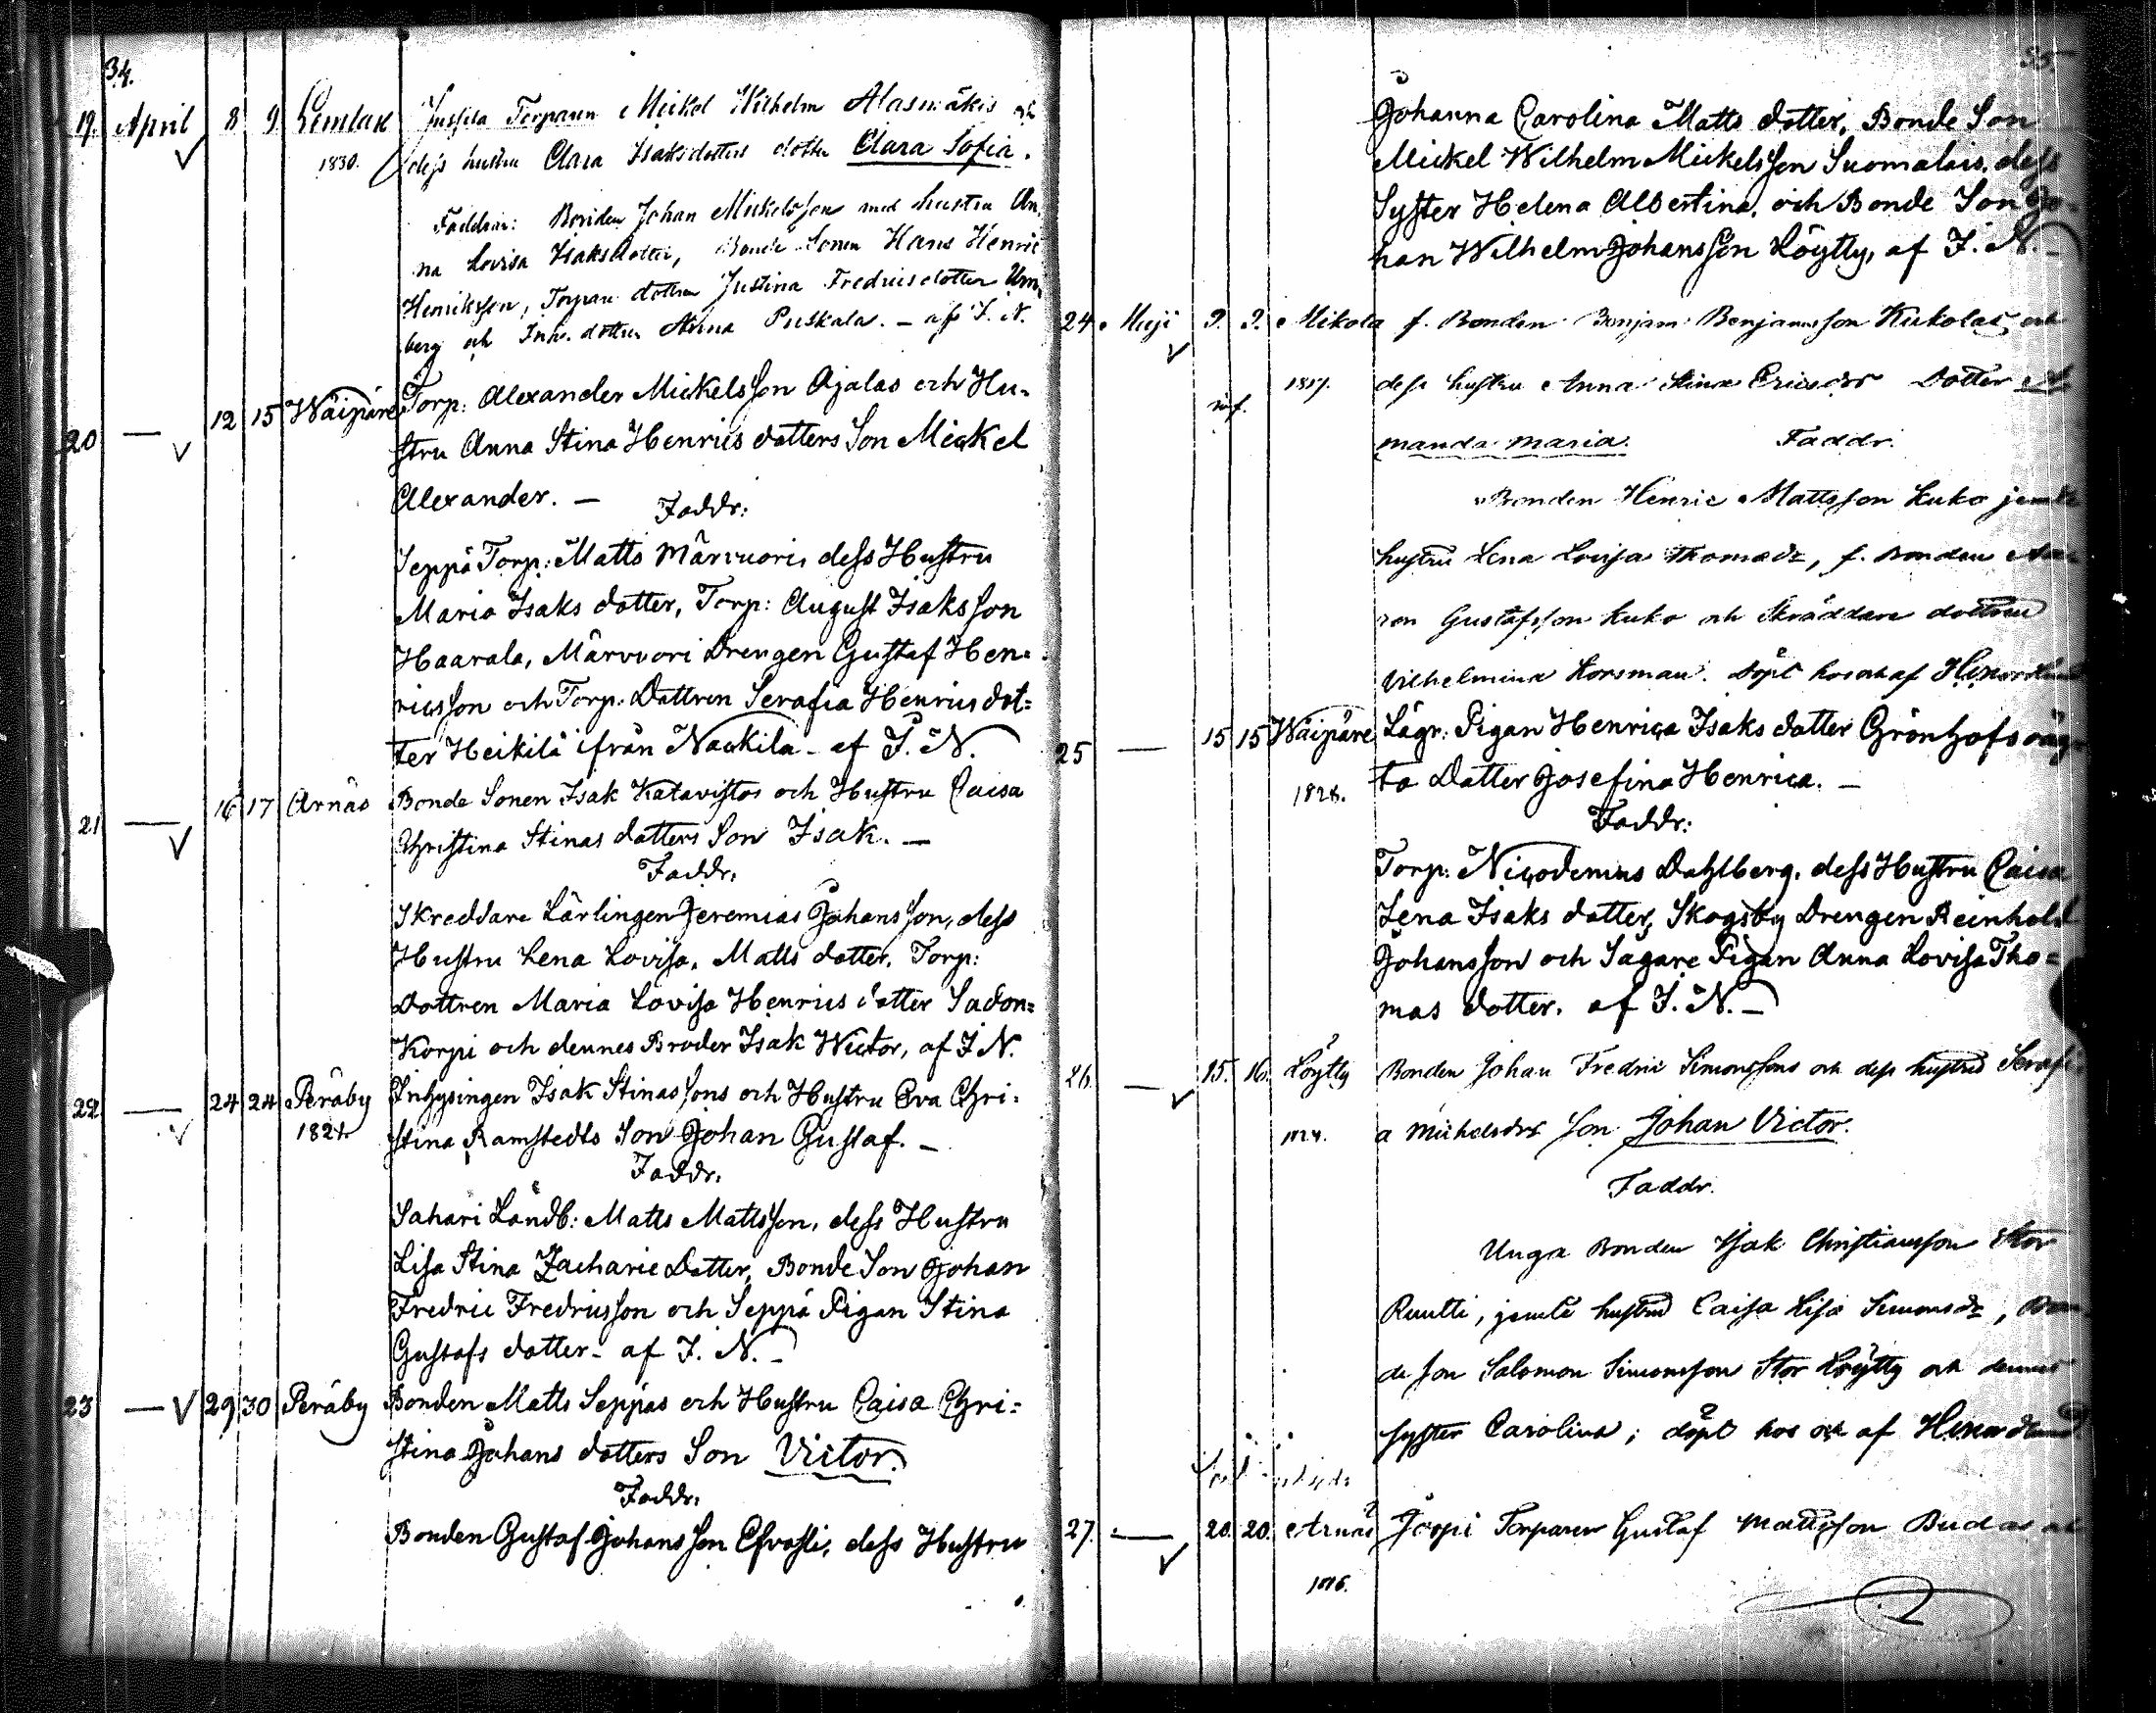 34.
19. April 8 9 Lemlax Jussila Torparen Mickel Wilhelm Alasmäkis och
1830. dess hustru Clara Isaksdotters dotter Clara Sofia.
Faddrar: Bonden Johan Mickelsson med hustru An,
na Lovisa Isaksdotter, Bonde Sonen Hans Henric
Henriksson, Torpare dottren Justina Fredricsdotter Um,
berg och Inh. dottren Anna Puskala. – af I. N.
20 — 12 15 Wäipäre Torp: Alexander Mickelsson Ajalas och Hu-
stru Anna Stina Henrics dotters Son Mickel
Alexander. –
Faddr:
Seppä Torp: Matts Märvuori, dess Hustru
Maria Isaks dotter, Torp: August Isaksson
Haarala, Märvuori Drengen Gustaf Hen-
ricsson och Torp. Dottren Serafia Henrics dot=
ter Heikilä ifrån Nackila – af I. N.
21 — 16 17 Arnäs Bonde Sonen Isak Katavistos och Hustru Caisa
Christina Stinas dotters Son Isak. –
Faddr.
Skreddare Lärlingen Jeremias Johansson, dess
Hustru Lena Lovisa, Matts dotter, Torp:
Dottren Maria Lovisa Henrics dotter Sadon=
Korpi och dennes Broder Isak Victor, af I N.
22 — 24 24 Peräby Inhysingen Isak Stinassons och Hustru Eva Chri-
1824. stina Ramstedts Son Johan Gustaf. –
Faddr.
Sahari Landb: Matts Mattsson, dess Hustru
Lisa Stina Zacharie Dotter, Bonde Son Johan
Fredric Fredricsson och Seppä Pigan Stina
Gustafs dotter – af I. N. –
23 — 29 30 Peräby Bonden Matts Seppäs och Hustru Caisa Chri=
stina Johans dotters Son Victor.
Faddr.
Bonden Gustaf Johansson dess Hustru
35
Johanna Carolina Matts dotter, Bonde Son
Mickel Wilhelm Mickelsson Suomalais, dess
Syster Helena Albertina, och Bonde Son Jo-
han Wilhelm Johansson Löytty, af I. N. –
24. Maji 9. 9. Mikola f. Bonden Benjam: Benjaminsson Kukolas, och
1817. dess hustru Anna Stina Ericsdrs Dotter A-
manda Maria. Faddr.
Bonden Henric Mattsson Kuko jemte
hustru Lena Lovisa Thomasdr, f. Bonden Aa-
ron Gustafsson Kuko och Skräddare dottren
Vilhelmina Korsman. döpt hos och af
25 — 15 15 Wäipäre Lägr: Pigan Henrica Isaks dotter Grönhofs oäg-
1828. ta Dotter Josefina Henrica. –
Faddr:
Torp: Nicodemus Dahlberg, dess Hustru Caisa
Lena Isaks dotter, Skogsby Drengen Reinhold
Johansson och Sagare Pigan Anna Lovisa Tho=
mas dotter. af I. N. –
26. — 15. 16. Löytty Bonden Johan Fredric Simonssons och dess hustru Serafi-
1824. a Michelsdrs son Johan Victor.
Faddr.
Unga Bonden Isak Christiansson Stor
Ruutti, jemte hustru Caisa Lisa Simonsdr, Bon
de son Salomon Simonsson Stor Löytty och dennes
syster Carolina; döpt hos och af
27. — 20. 20. Arnäs Jospi Torparen Gustaf Mattsson Budas och
1816.